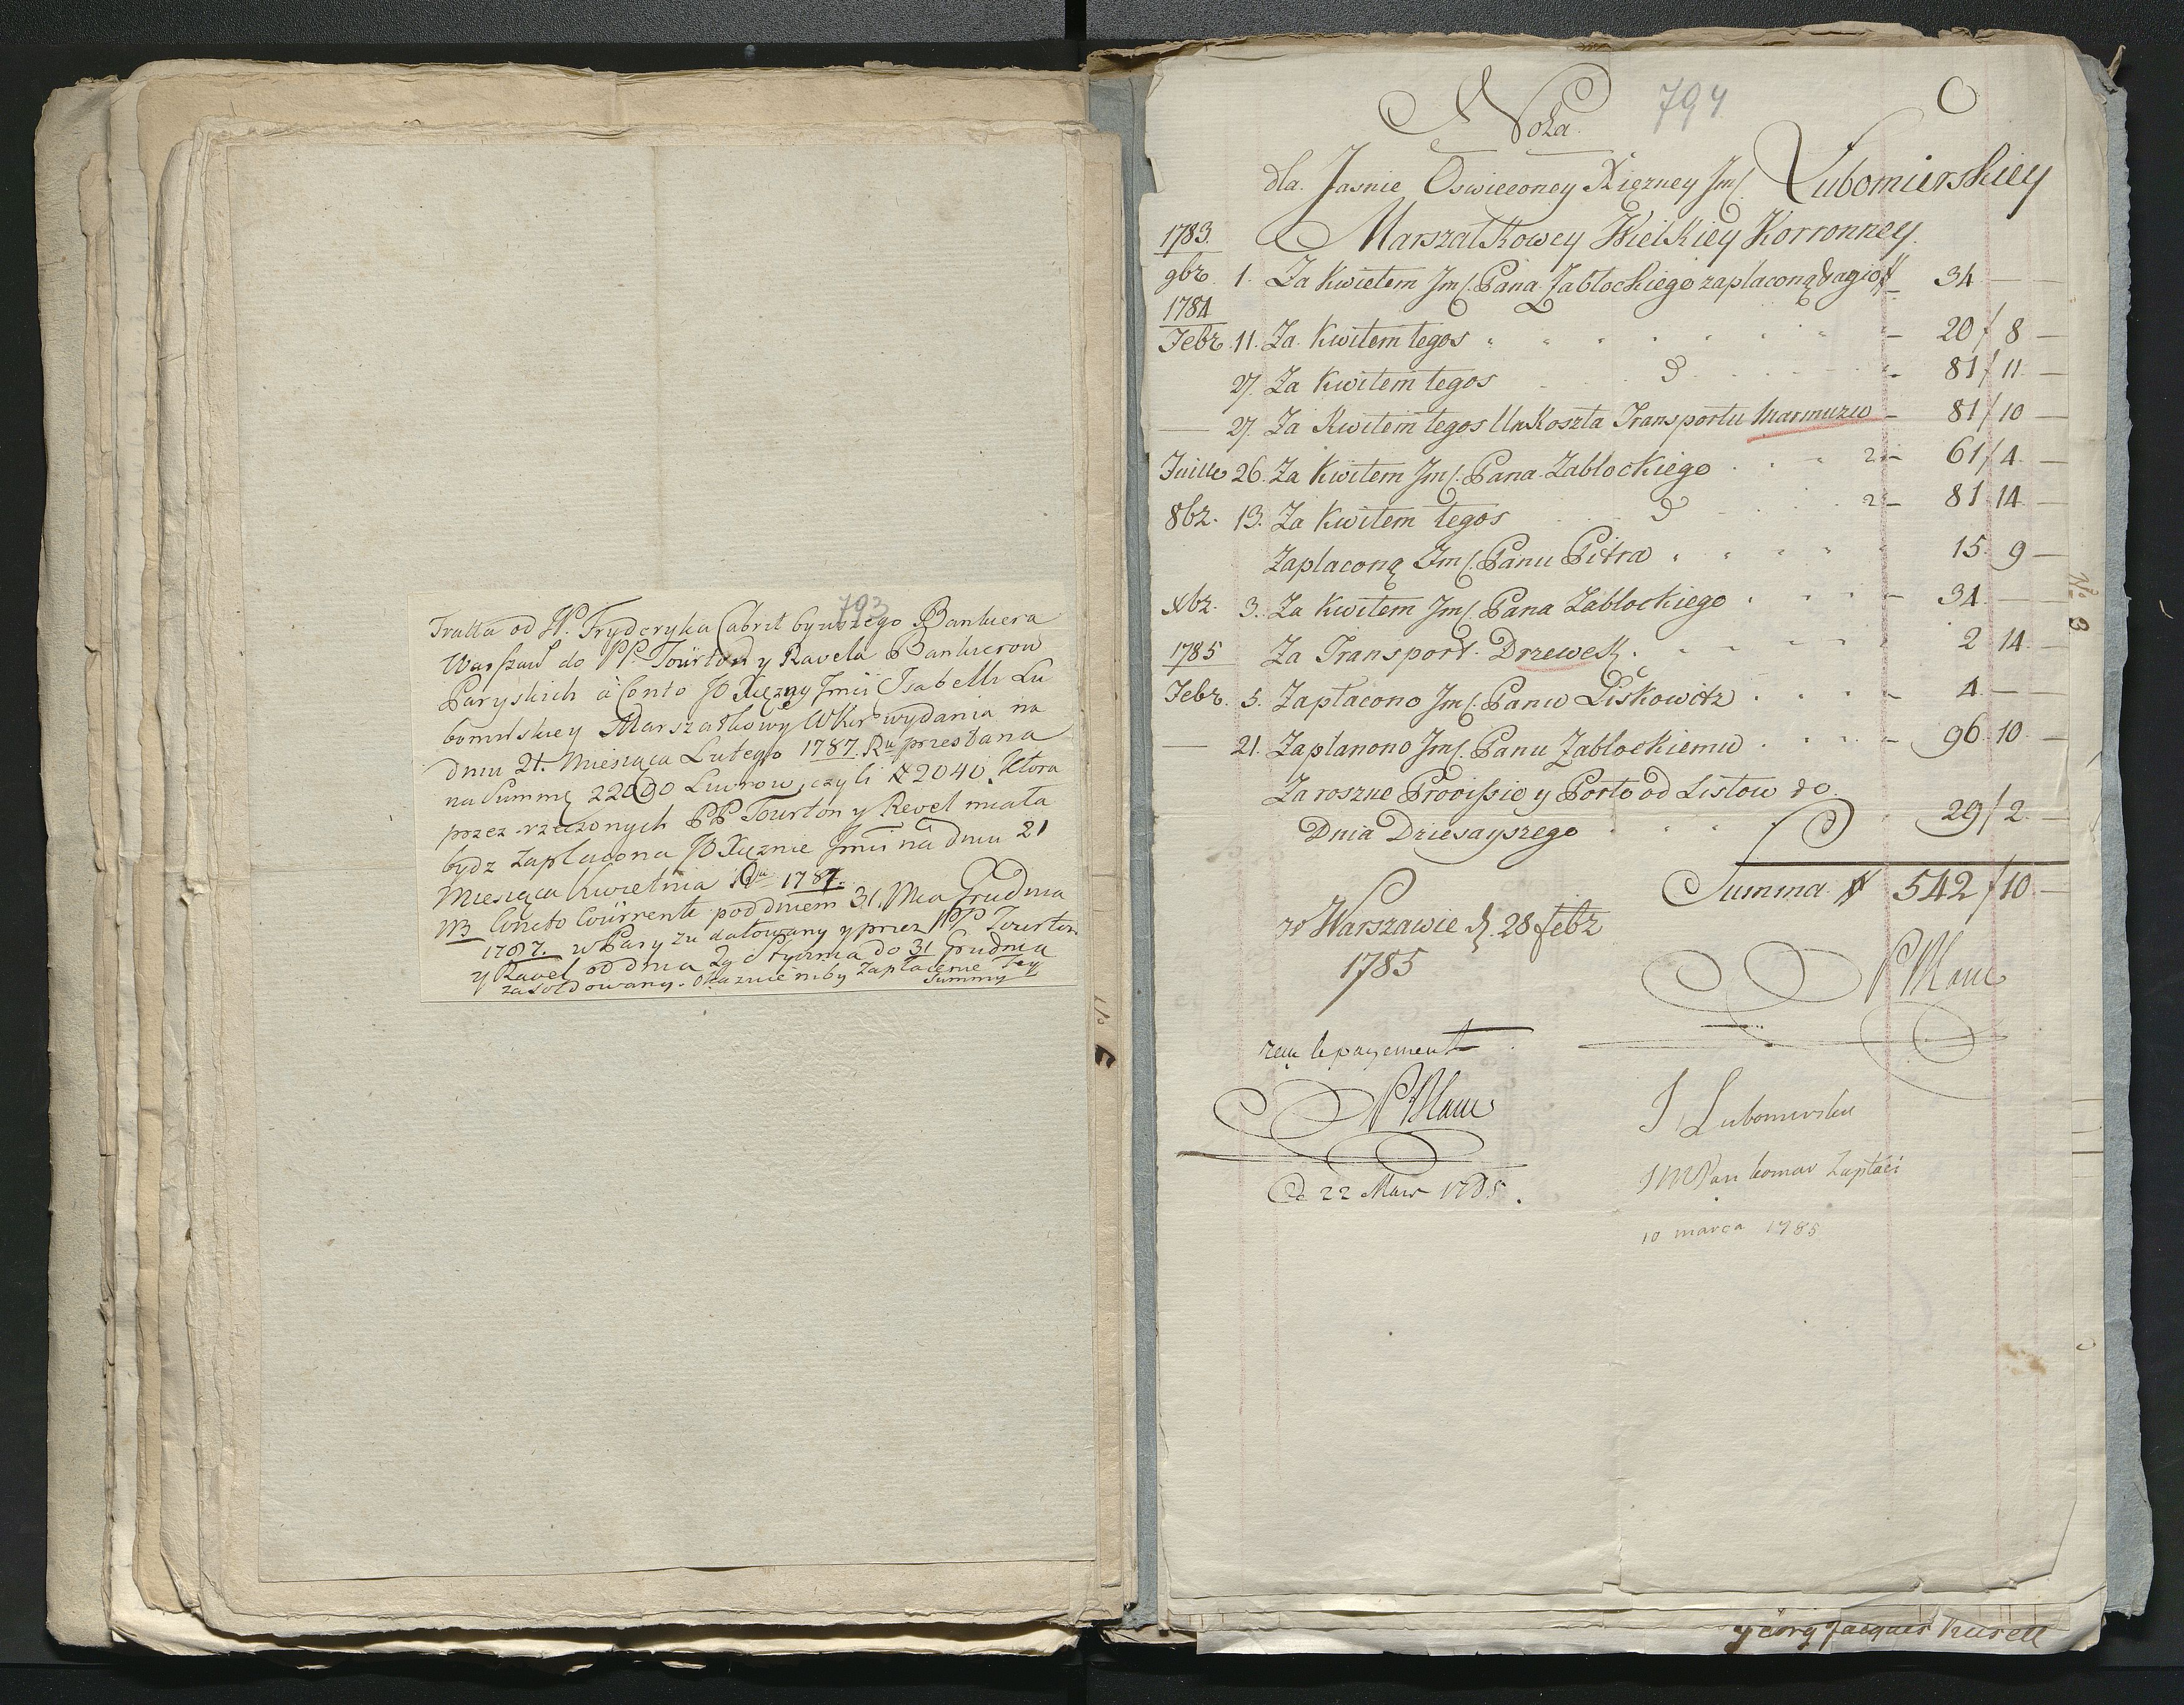 793
Tratta od W. Fryderyka Cabrit bywszego Bankiera
Warszaws do PP. Tourton y Ravela Bankierow
Paryskich à Conto JO Xiężny Jmci Isabelli Lu
bomirskiey Marszałkowy WKor wydania na
dniu 21. Miesiąca Lutego 1787. Ru przesłana
na Summę 22000 Liwrow, czyli # 2040. Ktora
przez rzeczonych PP Tourton y Revel miała
bydz zapłacona JO Xiężnie Jmci na dniu 21
Miesiąca Kwietnia Ru 1787.
NB Conto Courrente pod dniem 31. Mca Grudnia
1787. w Pary zu datowany y przez PP Tourton
y Ravel od dnia 29 Stycznia do 31 Grudnia
zasoldowany. Okazuie niby zapłacenie Tey
Summy
794
Nota
dla Jasnie Oswieconey Xiężney Jmś. Lubomierskiey
Marszalkowey Wielkiey Korronney.
1783.
9br. 1. Za Kwietem Jmś. Pana Zablockiego zaplaconą agio # 34 —
1784
Febr. 11. Za Kwitem tegos — 20 / 8 —
27. Za Kwitem tegos — 81 / 11 —
— 27. Za Kwitem tegos Unkoszta Transportu Marmurw — 81 / 10 —
Juille 26. Za Kwitem Jmś. Pana Zablockiego — 61 / 4 —
8br. 13. Za Kwitem tegos — 81 14 —
Zaplaconą Jmś. Panu Pitra 15 9 —
xbr. 3. Za Kwitem Jmś. Pana Zablockiego — 34 —
1785 Za Transport Drzewek 2 14 —
Febr. 5. Zaplacono Jmś. Panu Liskowitz 4 —
— 21. Zaplanono Jmś. Panu Zablockiemu — 96 10 —
Za roszne Provissie y Porto od Listow do
Dnia Dziesayszego 29 / 2 —
Summa # 542 / 10 —
w Warszawie d. 28 febr
1785
PBlanc
reçu le payement
PBlanc
Ce 22 Mars 1785.
I Lubomirska
JMPan komar Zapłaci
10 marca 1785
No 3
Georg Jacques Kurell